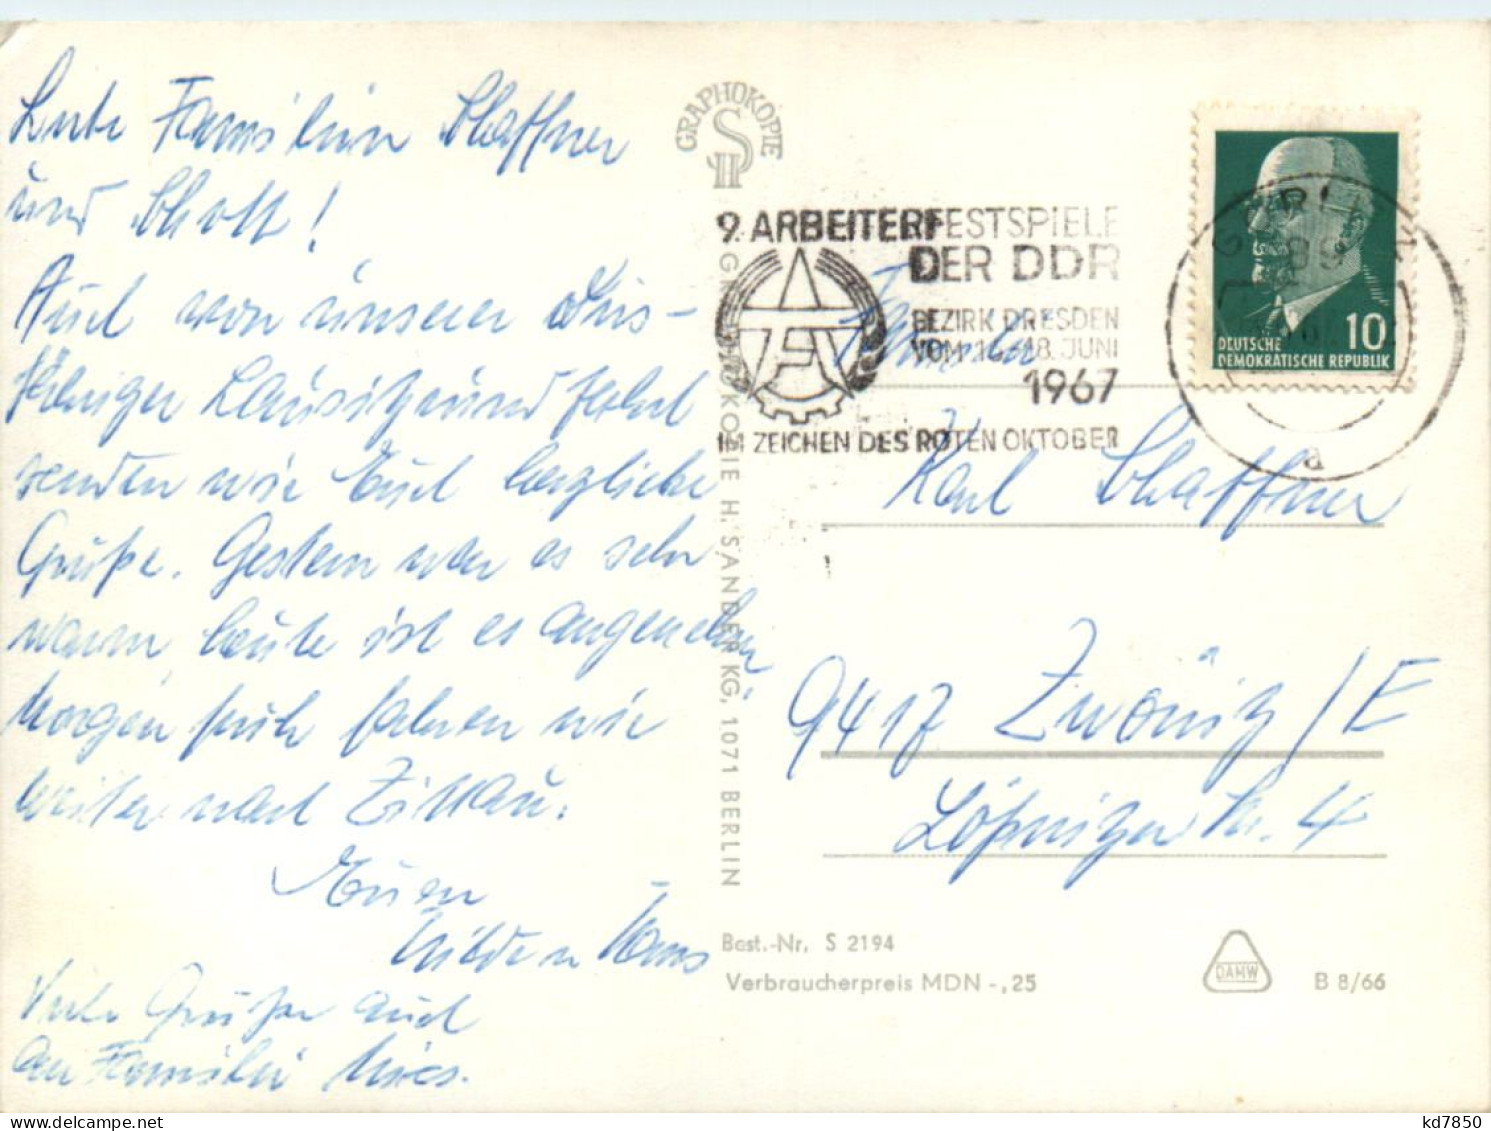 Liebe Familien Schaffner
und Schott!
Auch von unserer dies-
jährigen Lausitzrundfahrt
senden wir Euch herzliche
Grüße. Gestern war es sehr
warm, heute ist es angenehm,
Morgen früh fahren wir
weiter nach Zittau.
Euer
Hans
Viele Grüße auch
an Familie
GRAPHOKOPIE
9. ARBEITERFESTSPIELE
DER DDR
BEZIRK DRESDEN
VOM 16.-18. JUNI
1967
IM ZEICHEN DES ROTEN OKTOBER
DEUTSCHE 10
DEMOKRATISCHE REPUBLIK
a
Familie
Karl Schaffner
9417 Zwönitz/E
Lößnitzer Str. 4
GRAPHOKOPIE H. SANDER KG, 1071 BERLIN
Best.-Nr. S 2194
Verbraucherpreis MDN -,25
DAHW
B 8/66
kd7850